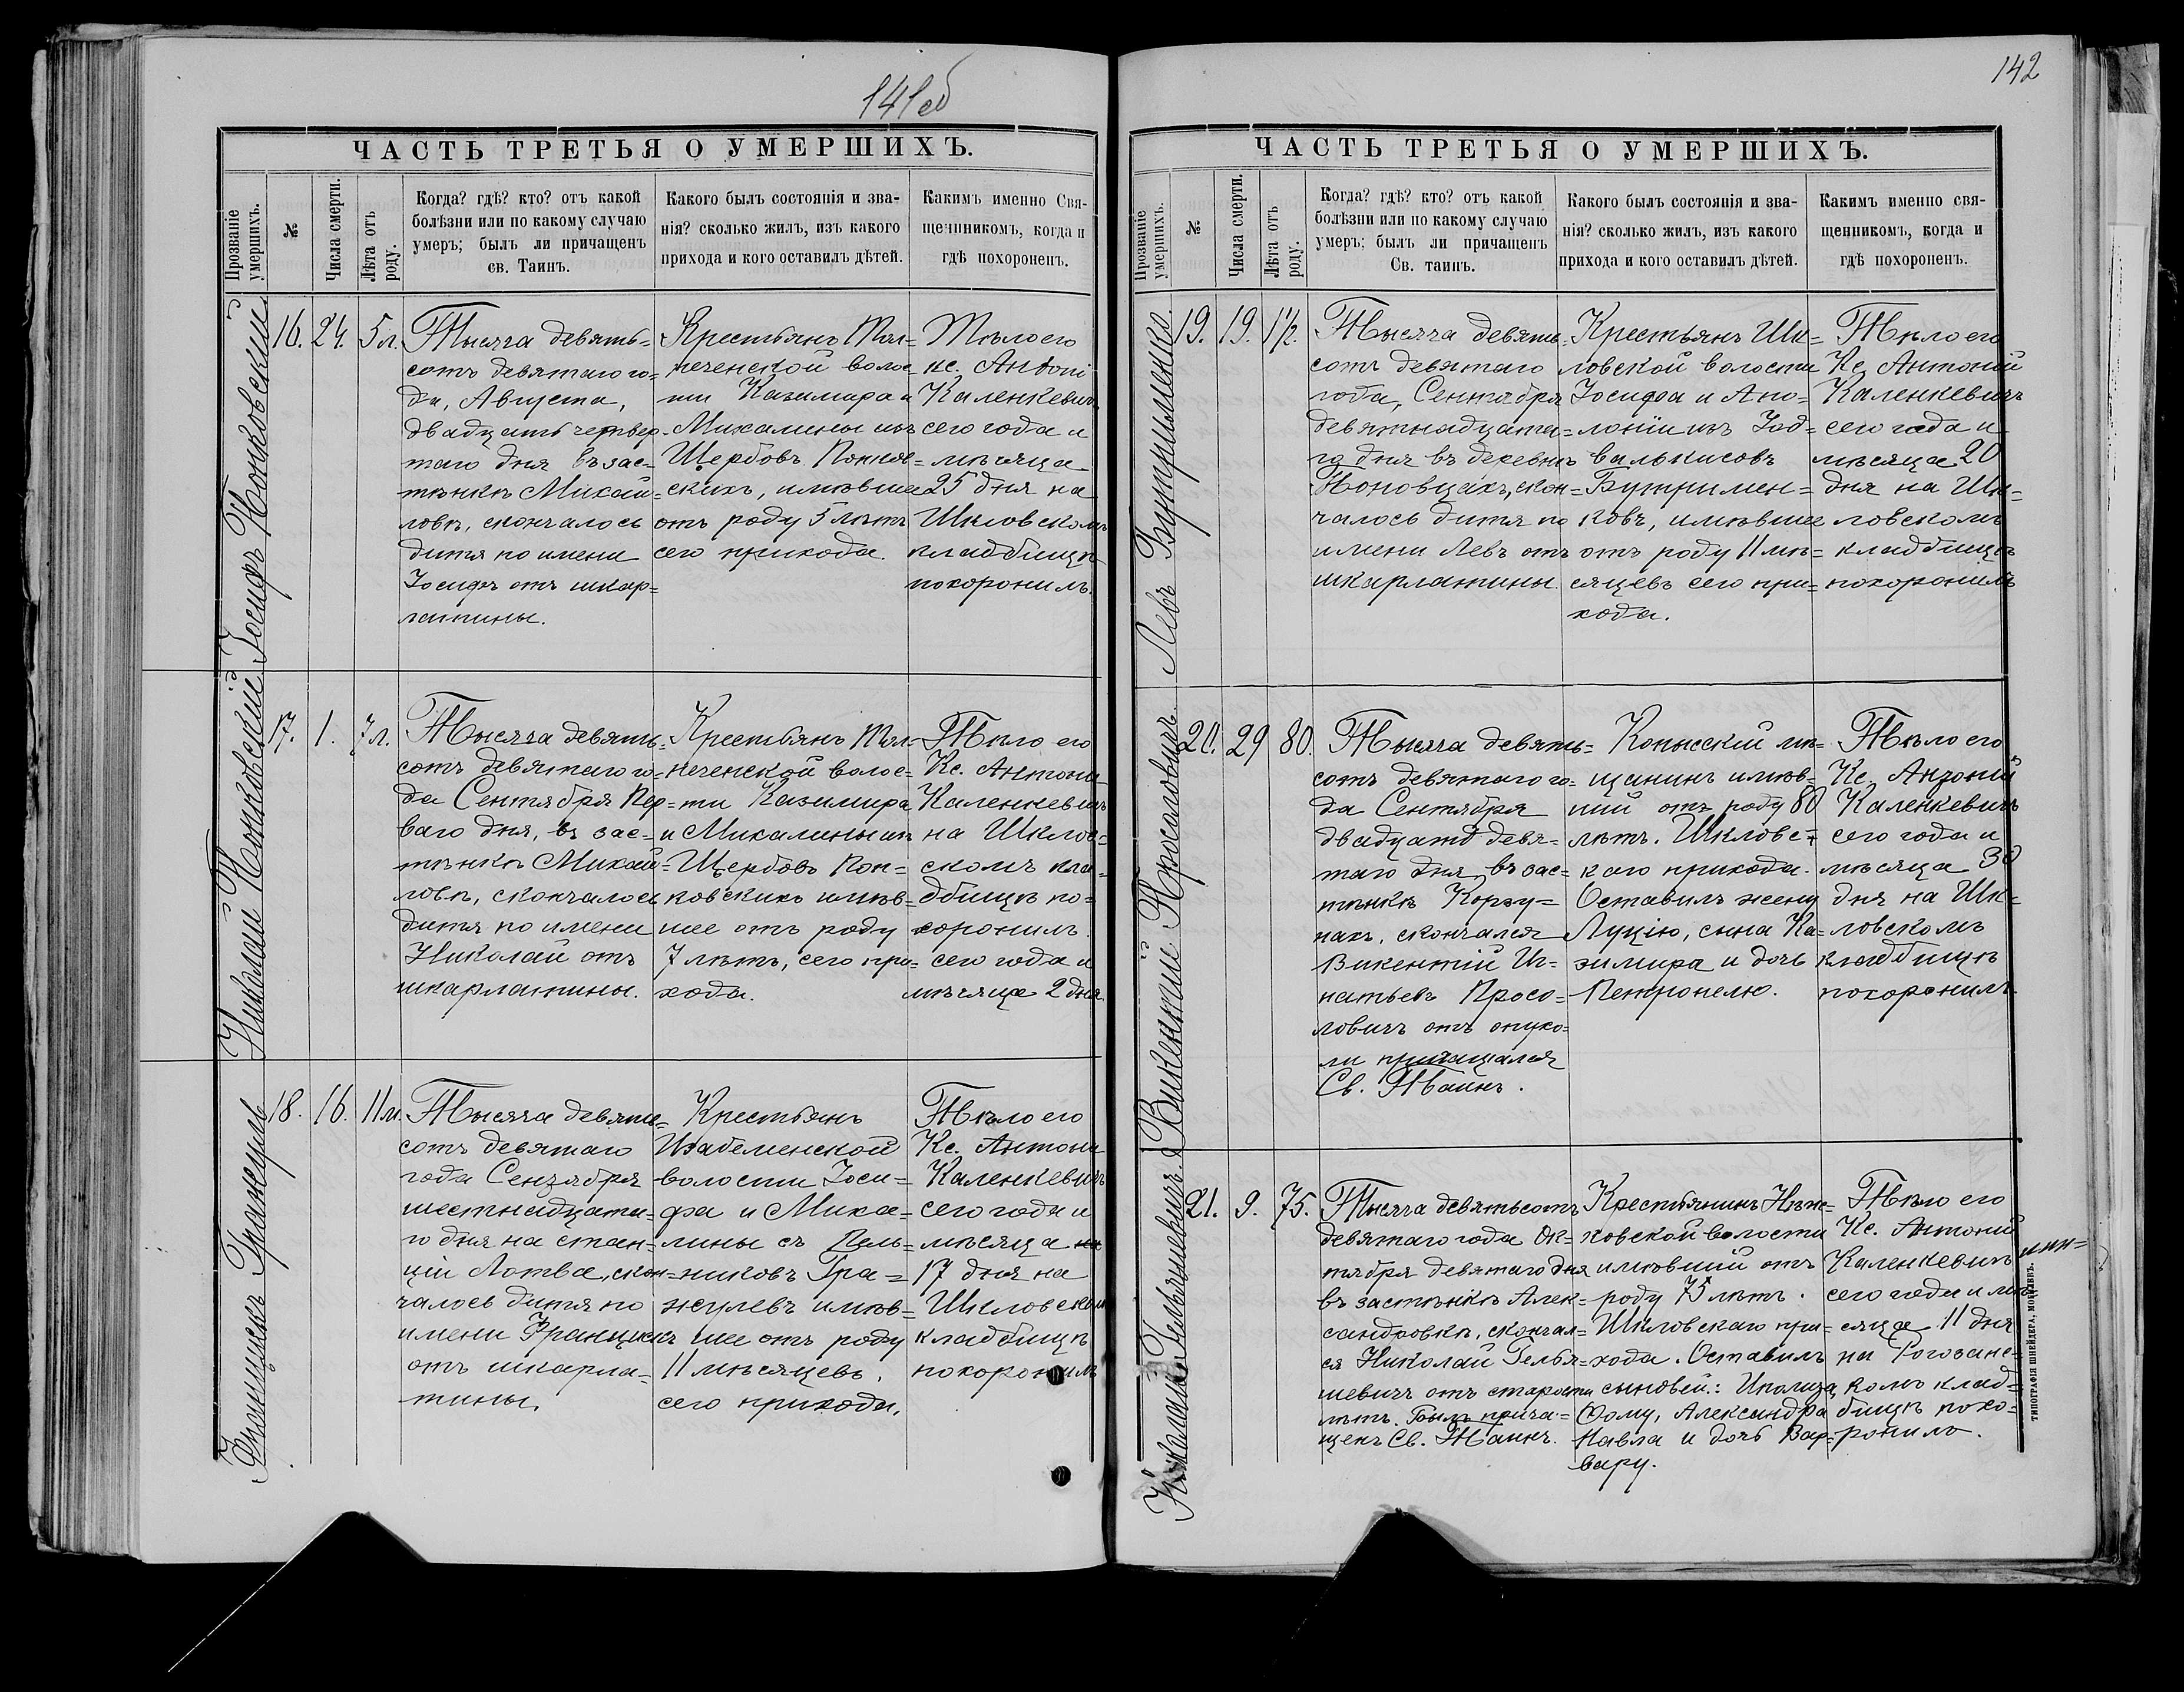 141об
ЧАСТЬ ТРЕТЬЯ О УМЕРШИХЪ.
Прозваніе умершихъ.
№
Числа смерти.
Лѣта отъ роду.
Когда? гдѣ? кто? отъ какой
болѣзни или по какому случаю
умеръ; былъ ли причащенъ
св. Таинъ.
Какого былъ состоянія и зва-
нія? сколько жилъ, изъ какого
прихода и кого оставилъ дѣтей.
Какимъ именно Свя-
щенникомъ, когда и
гдѣ похороненъ.
Іосифъ Понковскій
16.
24.
5 л.
Тысяча девять=
сотъ девятаго го=
да, Августа,
двадцать четвер=
таго дня въ зас=
тѣнкѣ Михай=
ловкѣ, скончалось
дитя по имени
Іосифъ отъ шкар=
латины.
Крестьянъ Тол=
печенской волос=
ти Казимира и
Михалины изъ
Щербовъ Понков=
скихъ, имѣвшее
отъ роду 5 лѣтъ
сего прихода.
Тѣло его
кс. Антоні
Каленкевичъ
сего года и
мѣсяца
25 дня на
Шкловскомъ
кладбищѣ
похоронилъ.
Николай Понковскій
17.
1.
7 л.
Тысяча девять=
сотъ девятаго го=
да Сентября Пер=
ваго дня, въ зас=
тѣнкѣ Михай=
ловкѣ, скончалось
дитя по имени
Николай отъ
шкарлатины.
Крестьянъ Тол=
печенской волос=
ти Казимира
и Михалины изъ
Щербовъ Пон=
ковскихъ имѣв=
шее отъ роду
7 лѣтъ, сего при=
хода.
Тѣло его
Кс. Антони
Каленкевичъ
на Шклов=
скомъ кла=
дбищѣ по=
хоронилъ.
сего года и
мѣсяца 2 дня.
Францискъ Гражуль
18.
16.
11 м.
Тысяча девять=
сотъ девятаго
года Сентября
шестнадцата=
го дня на стан=
ціи Лотва, скон=
чалось дитя по
имени Францискъ
отъ шкарла=
тины.
Крестьянъ
волости Іоси=
фа и Миха=
лины съ
никовъ Гра=
жулевъ имѣв=
шее отъ роду
11 мѣсяцевъ,
сего прихода.
Тѣло его
Кс. Антони
Каленкевичъ
сего года и
мѣсяца
17 дня на
Шкловском
кладбищѣ
похоронилъ
142
ЧАСТЬ ТРЕТЬЯ О УМЕРШИХЪ.
Прозваніе умершихъ.
№
Числа смерти.
Лѣта отъ роду.
Когда? гдѣ? кто? отъ какой
болѣзни или по какому случаю
умеръ; былъ ли причащенъ
Св. таинъ.
Какого былъ состоянія и зва-
нія? сколько жилъ, изъ какого
прихода и кого оставилъ дѣтей.
Какимъ именно свя-
щенникомъ, когда и
гдѣ похороненъ.
Левъ Бутрименко.
19.
19.
1½.
Тысяча девять=
сотъ девятаго
года, Сентября
девятнадцата=
го дня въ деревнѣ
скон=
чалось дитя по
имени Левъ отъ
шкарлатины.
Крестьянъ Шк=
ловской волости
Іосифа и Апо=
лоніи изъ Год=
валькисовъ
Бутримен=
ковъ, имѣвшее
отъ роду 11 мѣ=
сяцевъ сего при=
хода.
Тѣло его
Кс. Антоній
Каленкевичъ
сего года и
мѣсяца 20
дня на Шк=
ловскомъ
кладбищѣ
похоронилъ
Викентій Просоловичъ.
20.
29
80.
Тысяча девять=
сотъ девятаго го=
да Сентября
двадцать девя=
таго дня, въ зас=
тѣнкѣ Корзу=
нахъ, скончался
Викентій Иг=
натьевъ Просо=
ловичъ отъ опухо=
ли причащался
Св. Таинъ.
Копысскій мѣ=
щанинъ имѣв=
шій отъ роду 80
лѣтъ. Шкловс=
каго прихода.
Оставилъ жену
Луцію, сына Ка=
зимира и дочь
Петронелю.
Тѣло его
Кс. Антоній
Каленкевичъ
сего года и
мѣсяца 30
дня на Шк=
ловскомъ
кладбищѣ
похоронилъ.
Николай Гельяшевичъ.
21.
9.
75.
Тысяча девятьсотъ
девятаго года Ок=
тября девятаго дня
въ застѣнкѣ Алек=
сандровкѣ, скончал=
ся Николай Гелья=
шевичъ отъ старости
лѣтъ. Былъ прича=
щенъ Св. Таинъ.
Крестьянинъ
ковской волости
имѣвшій отъ
роду 75 лѣтъ.
Шкловскаго при=
хода. Оставилъ
сыновей:
Ѳому, Александра
Павла и дочь Вар=
вару.
Тѣло его
Кс. Антоній
Каленкевичъ
сего года и мѣ=
сяца 11 дня
на Рогозинс=
комъ клад=
бищѣ похо=
ронилъ.
ТИПОГРАФІЯ ШНЕЙДЕРА, МОГИЛЕВЪ.